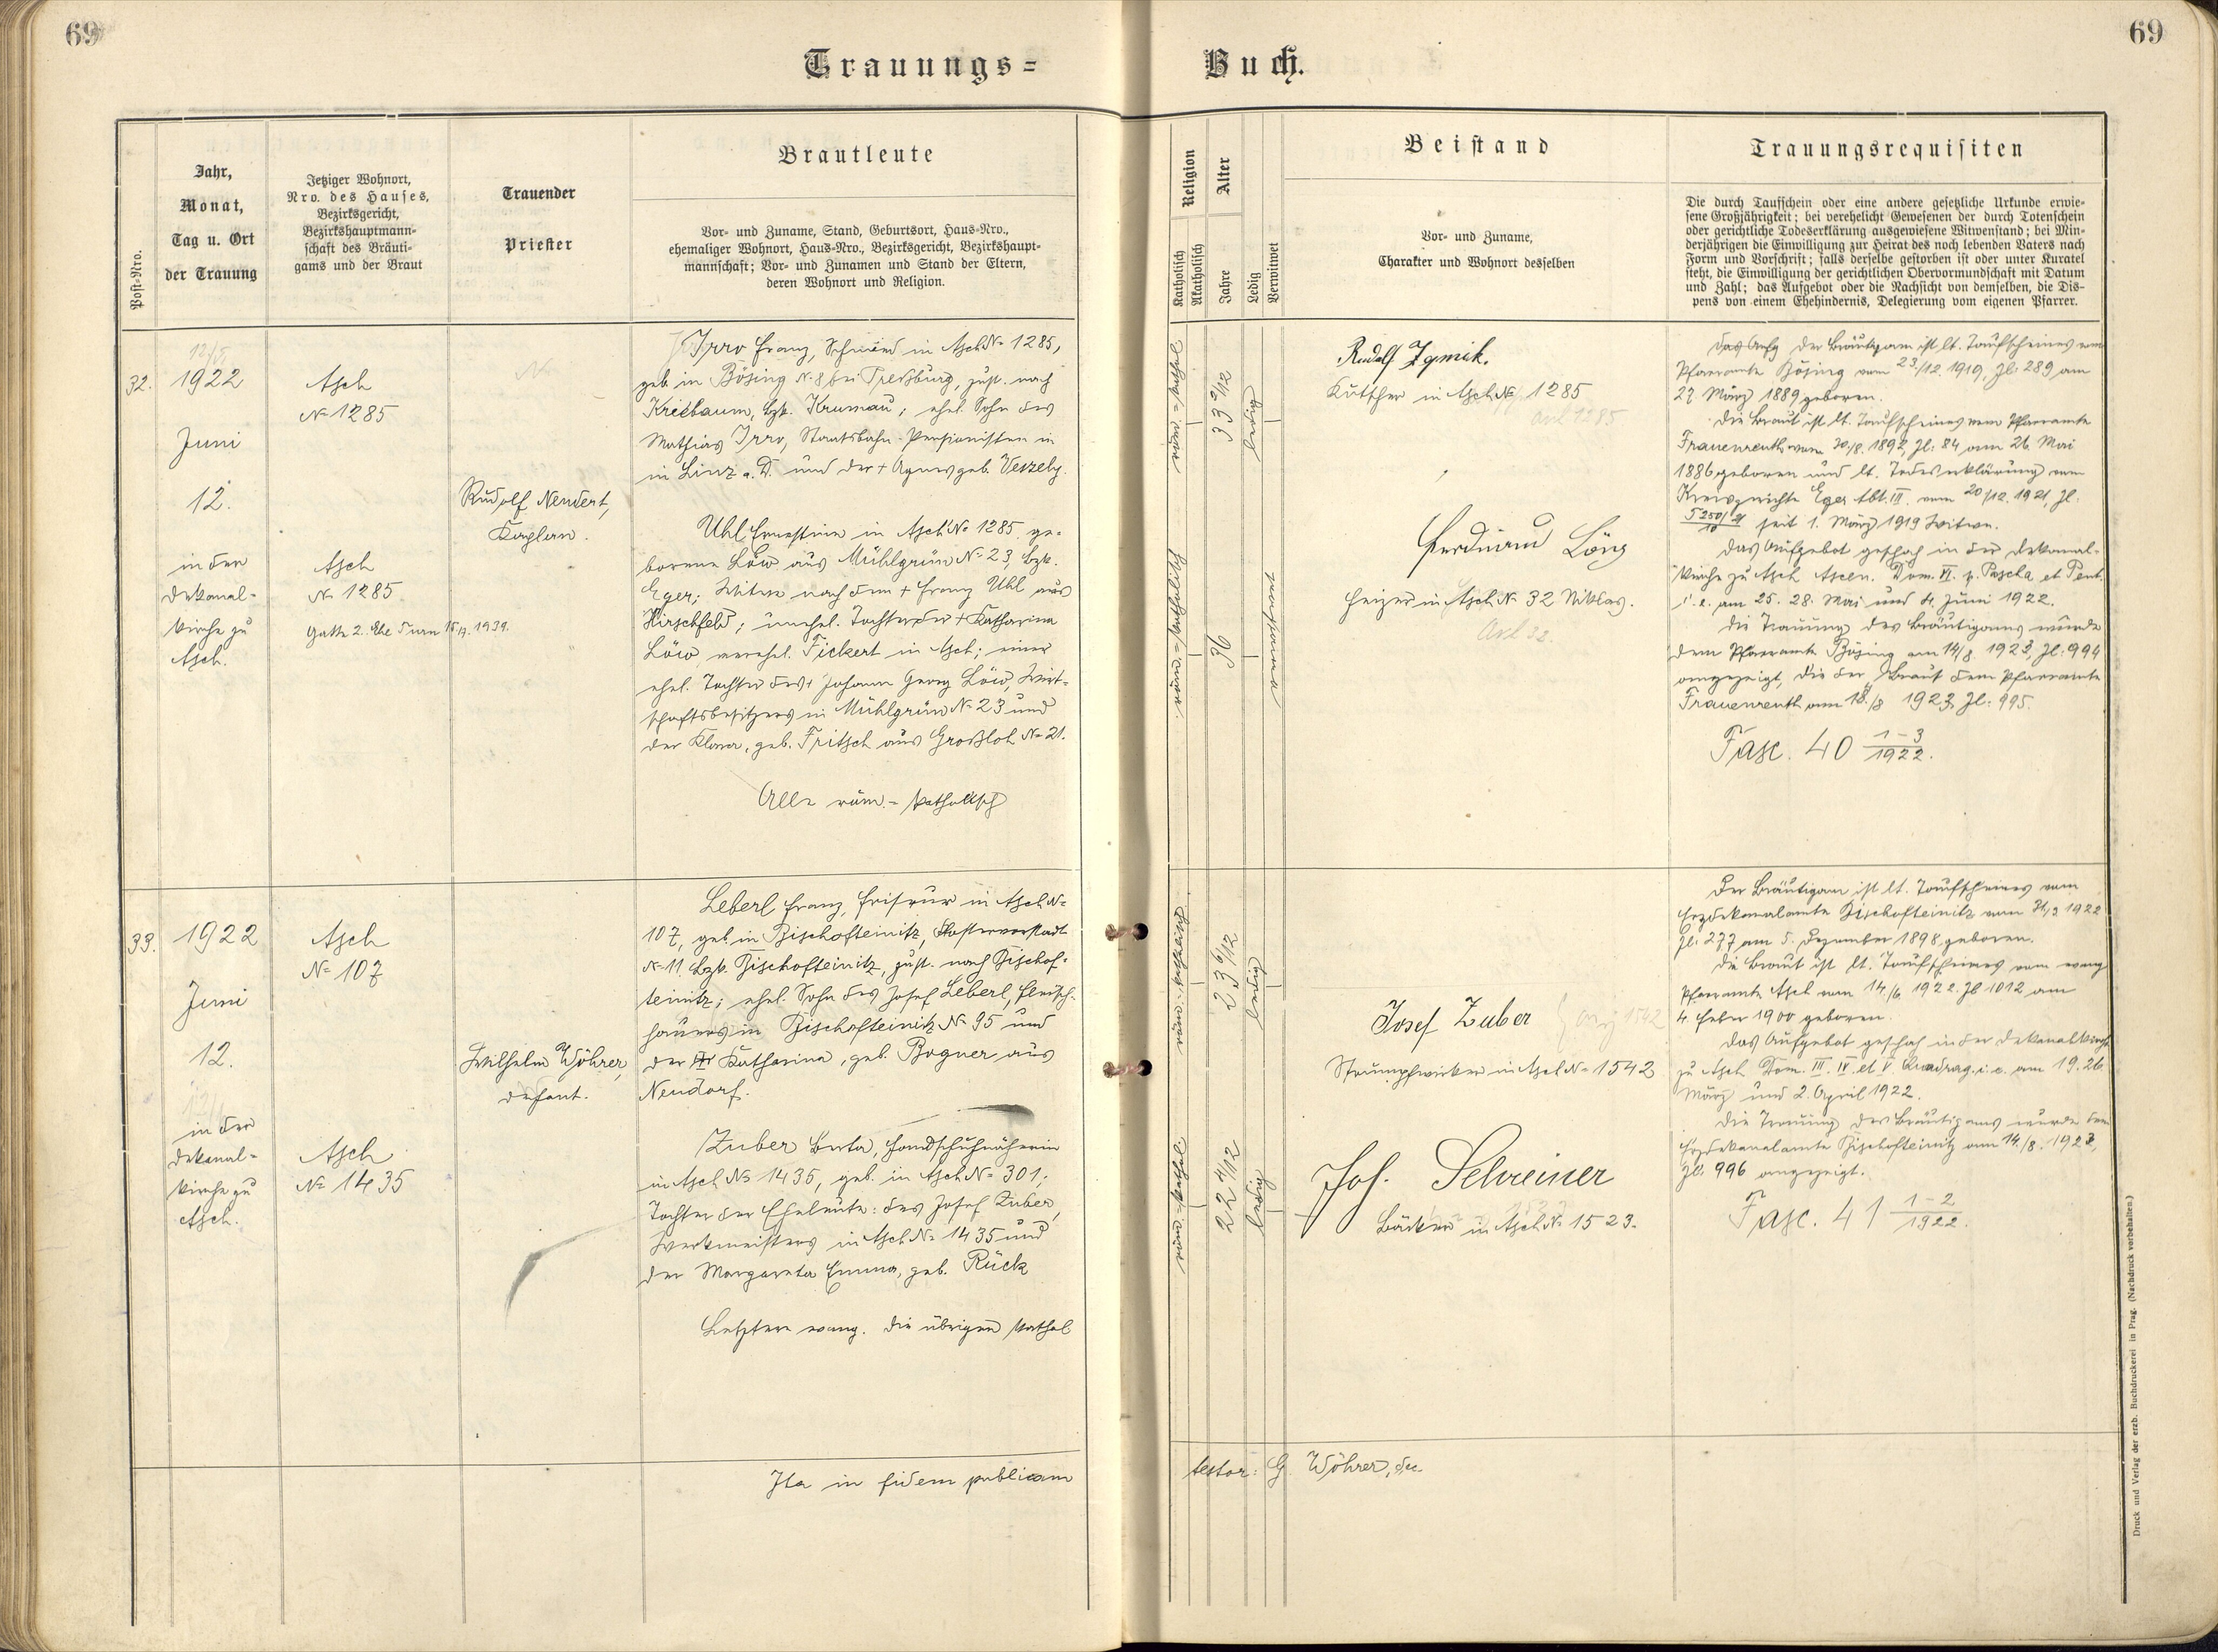 69
69
Trauungs=
Buch.
Post-Nro.
Jahr,
Monat,
Tag u. Ort
der Trauung
Jetziger Wohnort,
Nro. des Hauses,
Bezirksgericht,
Bezirkshauptmann-
schaft des Bräuti-
gams und der Braut
Trauender
Priester
Brautleute
Vor- und Zuname, Stand, Geburtsort, Haus-Nro.,
ehemaliger Wohnort, Haus-Nro., Bezirksgericht, Bezirkshaupt-
mannschaft; Vor- und Zunamen und Stand der Eltern,
deren Wohnort und Religion.
Religion
Katholisch
Akatholisch
Alter
Jahre
Ledig
Verwitwet
Beistand
Vor- und Zuname,
Charakter und Wohnort desselben
Trauungsrequisiten
Die durch Taufschein oder eine andere gesetzliche Urkunde erwie-
sene Großjährigkeit; bei verehelicht Gewesenen der durch Totenschein
oder gerichtliche Todeserklärung ausgewiesene Witwenstand; bei Min-
derjährigen die Einwilligung zur Heirat des noch lebenden Vaters nach
Form und Vorschrift; falls derselbe gestorben ist oder unter Kuratel
steht, die Einwilligung der gerichtlichen Obervormundschaft mit Datum
und Zahl; das Aufgebot oder die Nachsicht von demselben, die Dis-
pens von einem Ehehindernis, Delegierung vom eigenen Pfarrer.
32.
1922
Juni
12.
in der
Dekanal-
kirche zu
Asch.
Asch
No 1285
Asch
No 1285
Gatte 2. Ehe Turn 15/7. 1939.
Rudolf Neudert,
Kaplan.
Irro Franz, Schmied in Asch No 1285,
geb. in Bösing N. 8 bei Preßburg, zust. nach
Kriebaum, Bzk. Krumau; ehel. Sohn des
Mathias Irro, Staatsbahn-Pensionisten in
in Linz a. D. und der + Agnes geb. Veszely.
Uhl Ernestine in Asch No 1285 ge-
borene Löw aus Mühlgrün No 23, Bzk.
Eger; Witwe nach dem + Franz Uhl aus
Hirschfeld; unehel. Tochter der + Katharina
Löw verehel. Fickert in Asch; einer
ehel. Tochter des + Johann Georg Löw, Wirt-
schaftsbesitzers in Mühlgrün No 23 und
der Klara, geb. Fritsch aus Großloh No 21.
Alle röm.-katholisch
röm.=kathol
33 2/12
ledig
röm.=katholisch
36
verwitwet
Rudolf Zgmik.
Kutscher in Asch No 1285
Ferdinand Löng
Heizer in Asch No 32 Niklas.
Das Aufg der Bräutigam ist lt. Taufscheines vom
Pfarramte Bösing vom 23./12. 1919, Zl: 289 am
27 März 1889 geboren.
Die Braut ist lt. Taufscheines vom Pfarramte
Frauenreuth vom 30/8. 1892, Zl: 84 am 26. Mai
1886 geboren und lt. Todeserklärung vom
Kreisgerichte Eger Abt. III. vom 20/12. 1921, Zl.
5250/21 / 10 seit 1. März 1919 Witwe.
Das Aufgebot geschah in der Dekanal-
kirche zu Asch Ascen. Dom. VI. p. Pascha et Pent.
i. e. am 25. 28. Mai und 4. Juni 1922.
Die Trauung des Bräutigams wurde
dem Pfarramte Bösing am 14/8. 1923, Zl: 994
angezeigt, die der Braut dem Pfarramte
Frauenreuth am 18./8 1923, Zl: 995.
Fasc. 40 1-3/1922.
33.
1922
Juni
12.
in der
Dekanal-
kirche zu
Asch.
Asch
No 107
Asch
No 1435
Wilhelm Wöhrer,
Dechant.
Leberl Franz, Friseur in Asch No
107, geb. in Bischofteinitz, Klostervorstadt
No 11 Bzk. Bischofteinitz, zust. nach Bischof-
teinitz; ehel. Sohn des Josef Leberl, Fleisch-
hauers in Bischofteinitz No 95 und
der Katharina, geb. Bogner aus
Neudorf.
Zuber Berta, Handschuhnäherin
in Asch No 1435, geb. in Asch No 301;
Tochter der Eheleute: des Josef Zuber,
Werkmeisters in Asch No 1435 und
der Margareta Emma, geb. Rück
Letztere evang. die übrigen kathol
röm.=katholisch
23 6/12
ledig
röm.=kathol.
22 4/12
ledig
Josef Zuber
Strumpfwirker in Asch No 1542
Joh. Schreiner
Bäcker in Asch No 1523.
Der Bräutigam ist lt. Taufscheines vom
Erzdekanalamte Bischofteinitz vom 31/3 1922
Zl: 277 am 5. Dezember 1898 geboren.
Die Braut ist lt. Taufscheines vom evang
Pfarramte Asch vom 14./6. 1922. Zl 1012 am
4. Feber 1900 geboren.
Das Aufgebot geschah in der Dekanalkirche
zu Asch Dom. III. IV. et V. Quadrag. i. e. am 19. 26.
März und 2. April 1922.
Die Trauung des Bräutigams wurde dem
Erzdekanalamte Bischofteinitz am 14./8. 1923,
Zl: 996 angezeigt.
Fasc. 41 1-2/1922.
Ita in fidem publicam
testor: G Wöhrer, dec.
Druck und Verlag der erzb. Buchdruckerei in Prag. (Nachdruck vorbehalten.)